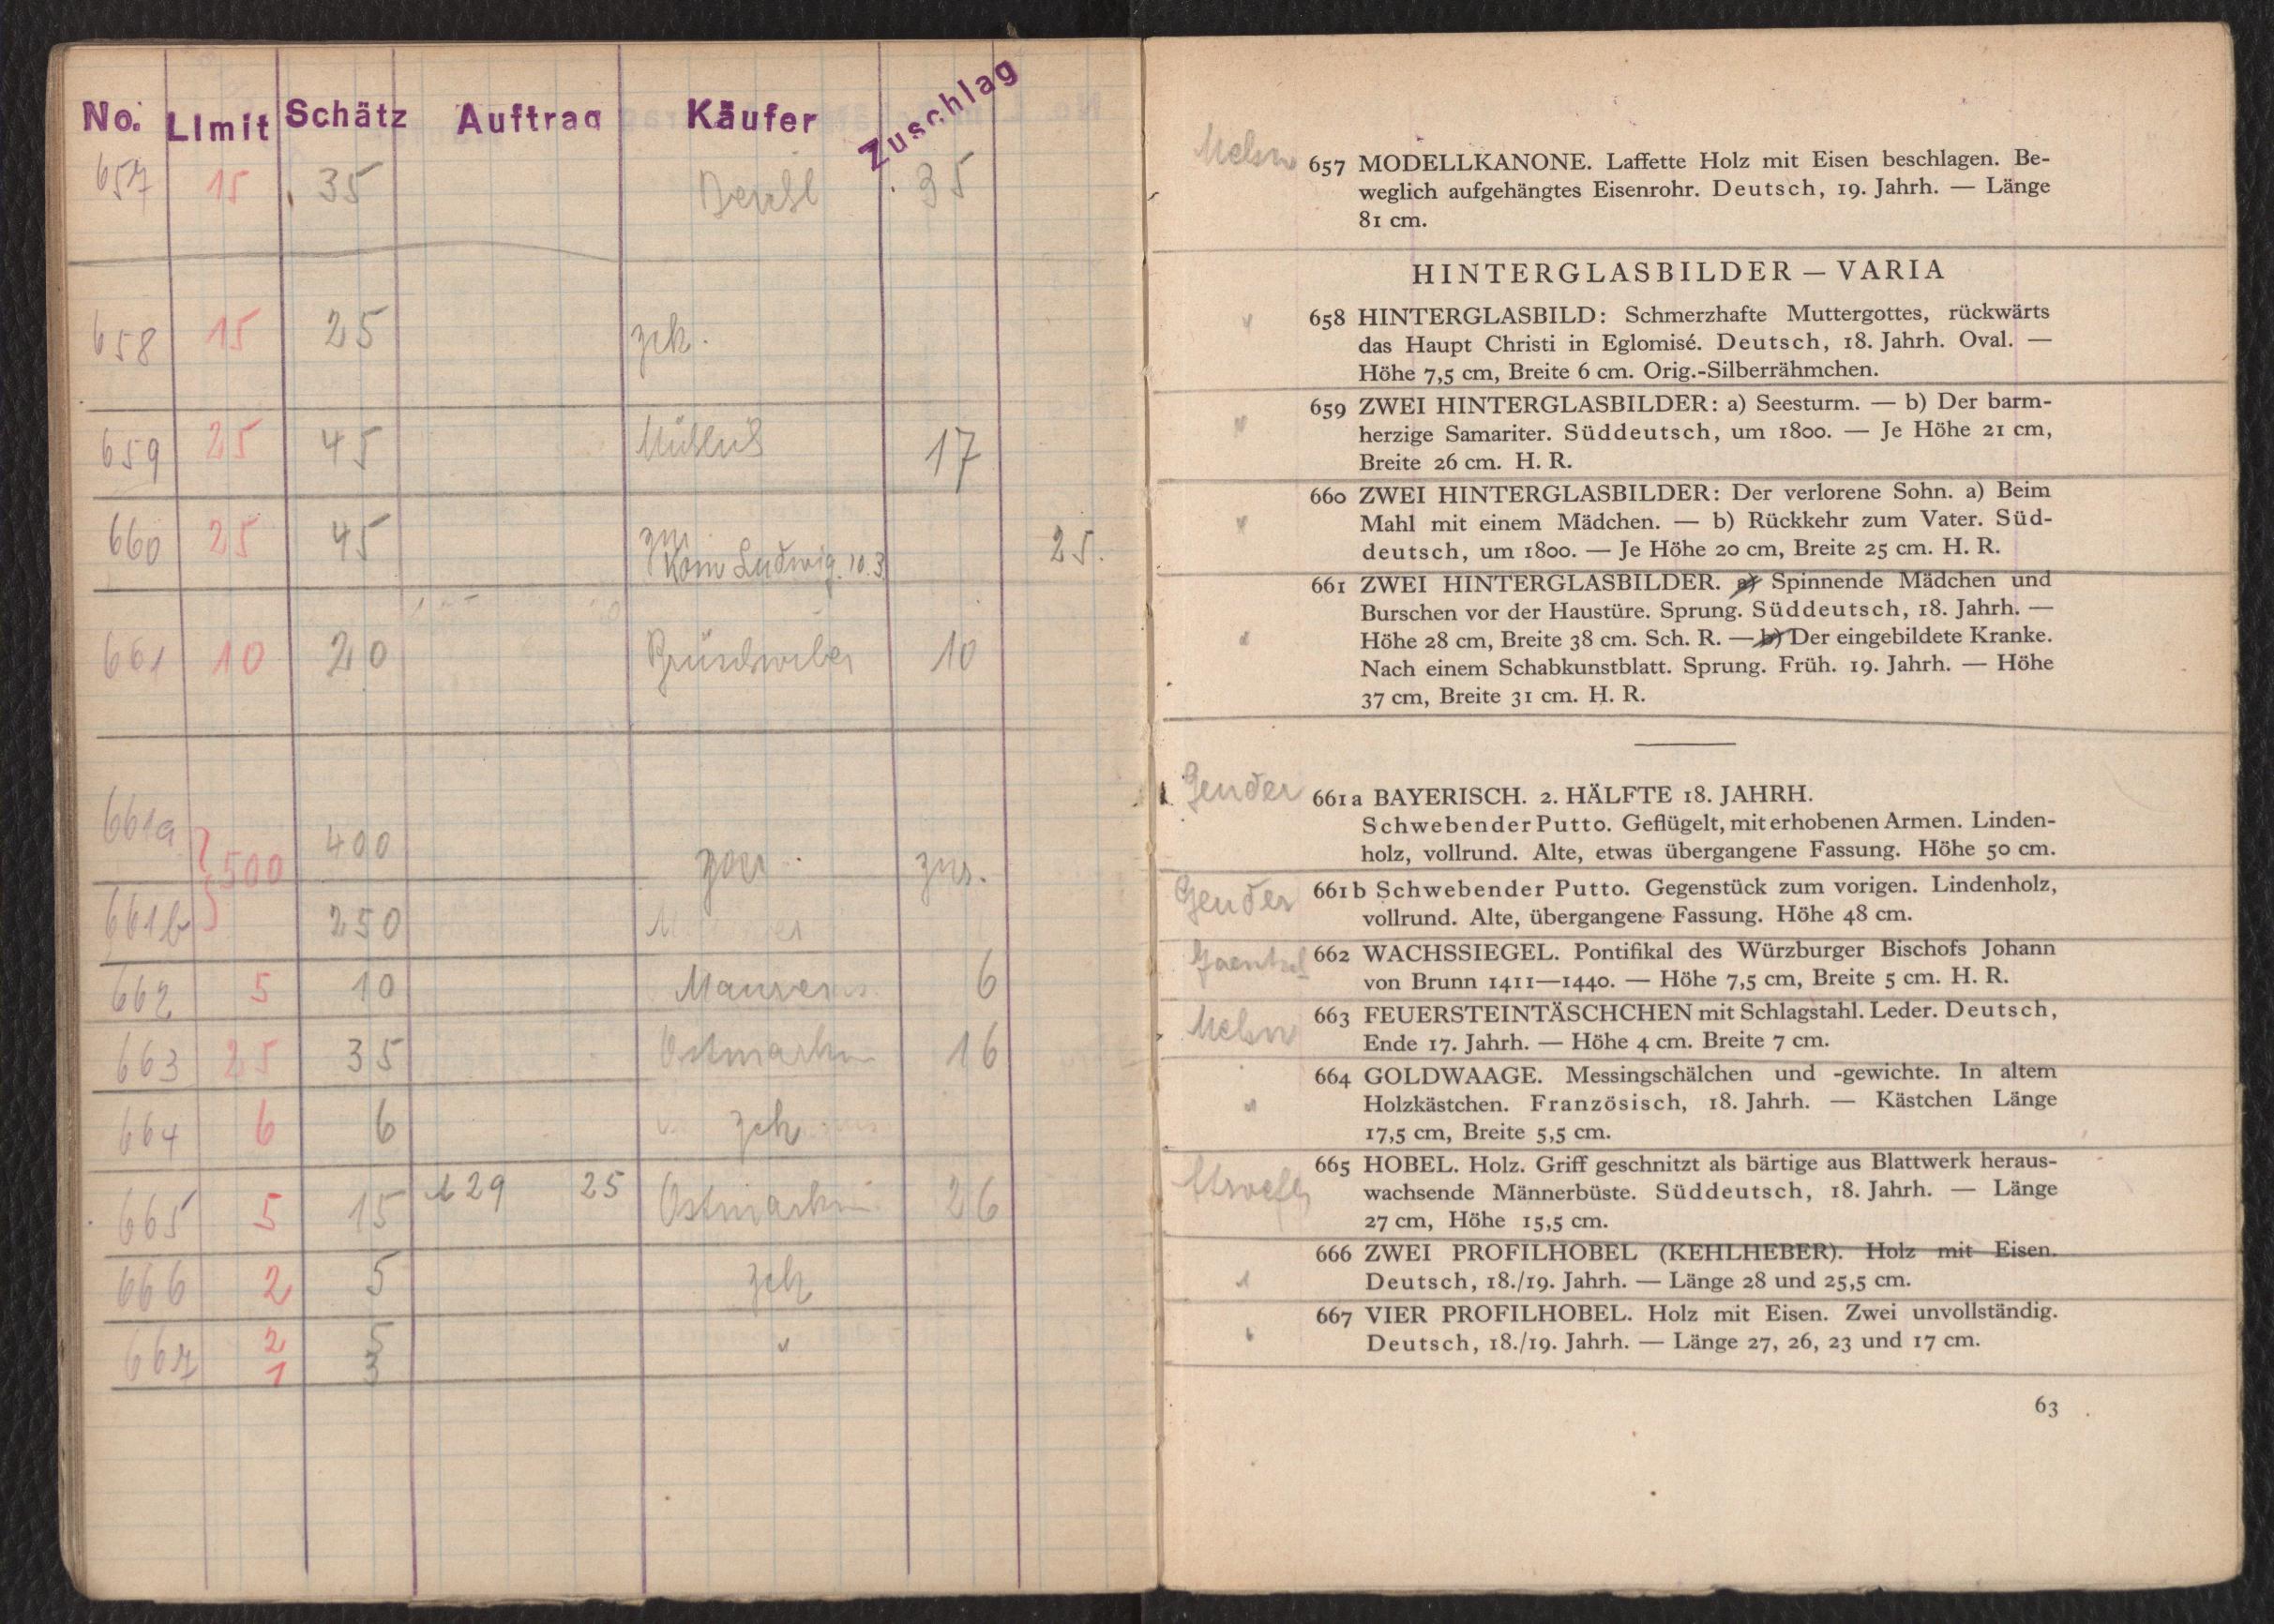 No. Limit Schätz Auftrag Käufer Zuschlag
657 15 35 35
658 15 25 zck.
659 25 45 17
660 25 45 zur. 25.
Kom Ludwig. 10.3
661 10 20 10
661a 500 400 zur. zur.
661b 250
662 5 10 6
663 25 35 16
664 6 6 zck
665 5 15 29 25 26
666 2 5 zck
667 2 5 "
1 3
657 MODELLKANONE. Laffette Holz mit Eisen beschlagen. Be-
weglich aufgehängtes Eisenrohr. Deutsch, 19. Jahrh. — Länge
81 cm.
HINTERGLASBILDER – VARIA
" 658 HINTERGLASBILD: Schmerzhafte Muttergottes, rückwärts
das Haupt Christi in Eglomisé. Deutsch, 18. Jahrh. Oval. —
Höhe 7,5 cm, Breite 6 cm. Orig.-Silberrähmchen.
" 659 ZWEI HINTERGLASBILDER: a) Seesturm. — b) Der barm-
herzige Samariter. Süddeutsch, um 1800. — Je Höhe 21 cm,
Breite 26 cm. H. R.
" 660 ZWEI HINTERGLASBILDER: Der verlorene Sohn. a) Beim
Mahl mit einem Mädchen. — b) Rückkehr zum Vater. Süd-
deutsch, um 1800. — Je Höhe 20 cm, Breite 25 cm. H. R.
661 ZWEI HINTERGLASBILDER. a) Spinnende Mädchen und
Burschen vor der Haustüre. Sprung. Süddeutsch, 18. Jahrh. —
" Höhe 28 cm, Breite 38 cm. Sch. R. — b) Der eingebildete Kranke.
Nach einem Schabkunstblatt. Sprung. Früh. 19. Jahrh. — Höhe
37 cm, Breite 31 cm. H. R.
Gender 661a BAYERISCH. 2. HÄLFTE 18. JAHRH.
Schwebender Putto. Geflügelt, mit erhobenen Armen. Linden-
holz, vollrund. Alte, etwas übergangene Fassung. Höhe 50 cm.
Gender 661b Schwebender Putto. Gegenstück zum vorigen. Lindenholz,
vollrund. Alte, übergangene Fassung. Höhe 48 cm.
662 WACHSSIEGEL. Pontifikal des Würzburger Bischofs Johann
von Brunn 1411—1440. — Höhe 7,5 cm, Breite 5 cm. H. R.
663 FEUERSTEINTÄSCHCHEN mit Schlagstahl. Leder. Deutsch,
Ende 17. Jahrh. — Höhe 4 cm. Breite 7 cm.
664 GOLDWAAGE. Messingschälchen und -gewichte. In altem
" Holzkästchen. Französisch, 18. Jahrh. — Kästchen Länge
17,5 cm, Breite 5,5 cm.
665 HOBEL. Holz. Griff geschnitzt als bärtige aus Blattwerk heraus-
wachsende Männerbüste. Süddeutsch, 18. Jahrh. — Länge
27 cm, Höhe 15,5 cm.
666 ZWEI PROFILHOBEL (KEHLHEBER). Holz mit Eisen.
" Deutsch, 18./19. Jahrh. — Länge 28 und 25,5 cm.
667 VIER PROFILHOBEL. Holz mit Eisen. Zwei unvollständig.
" Deutsch, 18./19. Jahrh. — Länge 27, 26, 23 und 17 cm.
63